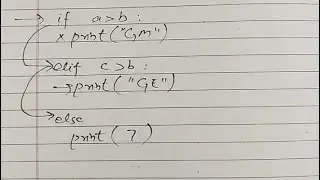 → if a>b :
x print("GM")
→ elif c>b :
→ print("GE")
→ else
print(7)